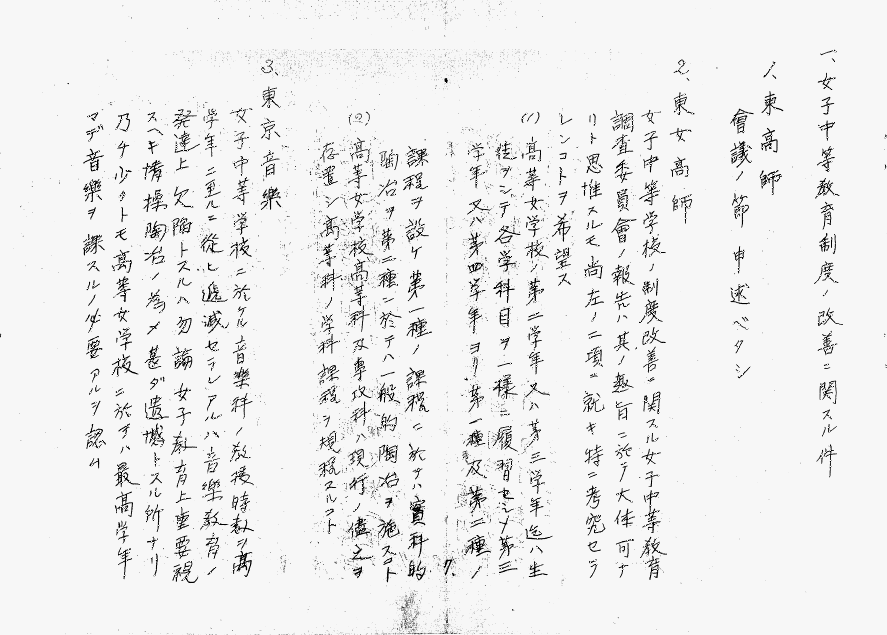 一、女子中等教育制度ノ改善ニ関スル件
1、東高師
會議ノ節申述ベクシ
2、東女高師
女子中等学校ノ制度改善ニ関スル女子中等教育
調査委員會ノ報告ハ其ノ趣旨ニ於テ大体可ナ
リト思惟スルモ尚左ノ二項ニ就キ特ニ考究セラ
レンコトヲ希望ス
(1)高等女学校ノ第二学年又ハ第三学年迄ハ生
徒ヲシテ各学科目ヲ一様ニ履習セシメ第三
学年又ハ第四学年ヨリ第一種及第二種ノ
7.
課程ヲ設ケ第一種ノ課程ニ於テハ實科的
陶冶ヲ第二種ニ於テハ一般的陶冶ヲ施スコト
(2)高等女学校高等科及専攻科ハ現行ノ儘之ヲ
存置シ高等科ノ学科課程ヲ規程スルコト
3、東京音樂
女子中等学校ニ於ケル音樂科ノ教授時数ヲ高
学年ニ至ルニ從ヒ遞減セラレアルハ音樂教育ノ
発達上欠陥トスルハ勿論女子教育上重要視
スヘキ情操陶冶ノ為メ甚ダ遺憾トスル所ナリ
乃チ少クトモ高等女学校ニ於テハ最高学年
マデ音樂ヲ課スルノ必要アルヲ認ム